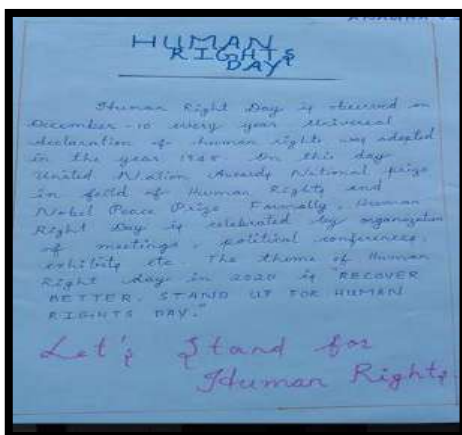 HUMAN
RIGHTS
DAY
Human Right Day is observed on
December-10 every year Universal
declaration of human rights was adopted
in the year 1948 On this day
United Nation Awards National prize
in feild of Human Rights and
Nobel Peace Prize Formally, Human
Right Day is celebrated by organization
of meetings, political conferences,
exhibits etc. The theme of Human
Right day in 2020 is "RECOVER
BETTER, STAND UP FOR HUMAN
RIGHTS DAY."
Let's Stand for
Human Rights.